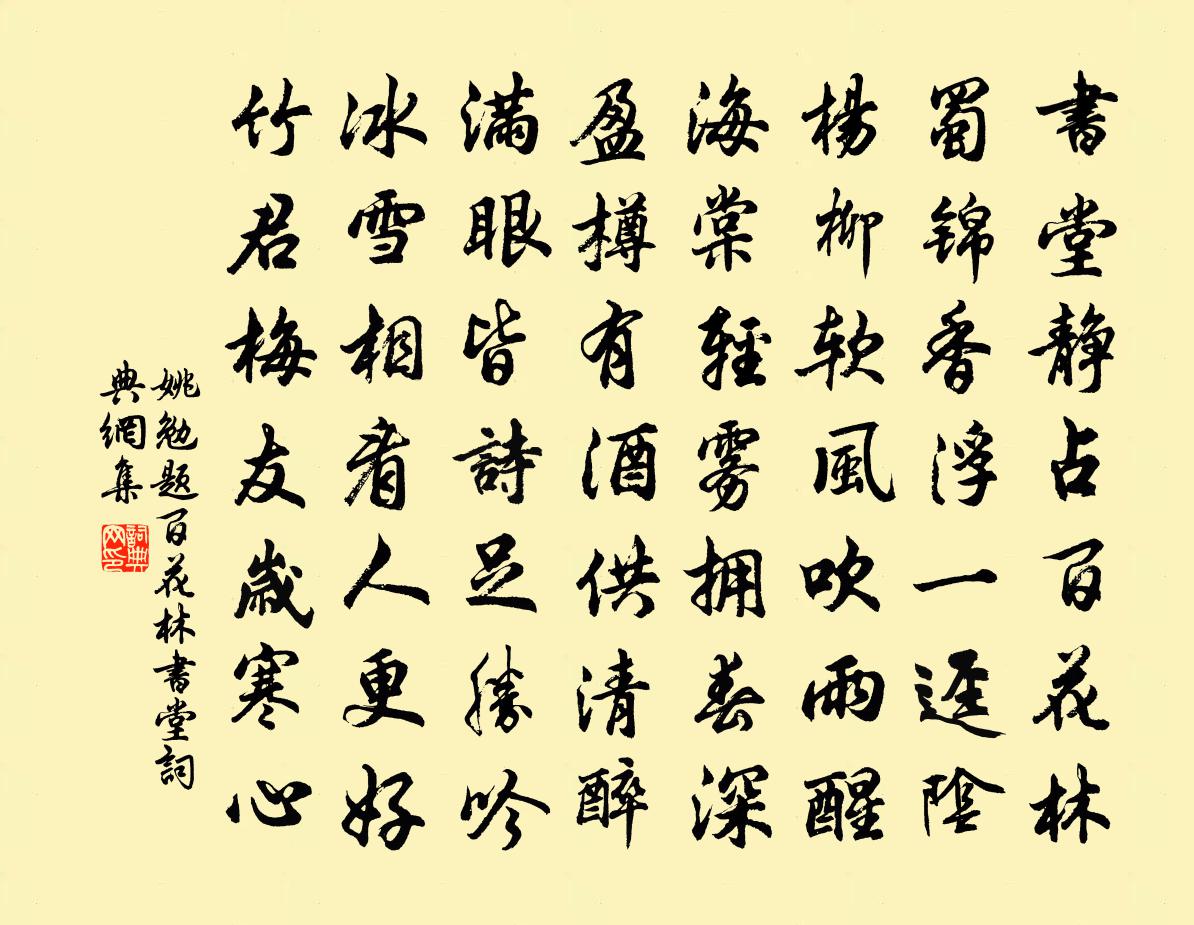 書堂靜占百花林
蜀錦香浮一逕陰
楊柳軟風吹雨醒
海棠輕雾拥春深
盈樽有酒供清醉
滿眼皆詩足勝吟
冰雪相看人更好
竹君梅友歲寒心
姚勉题百花林書堂詞
典網集
詞典
网印